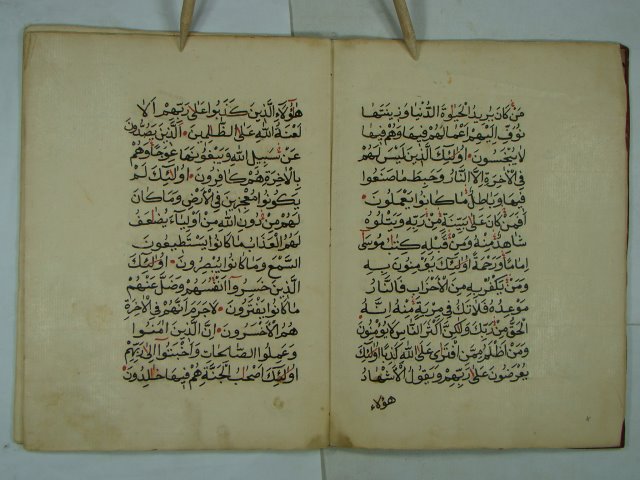 مَنْ كَانَ يُرِيدُ الْحَيٰوةَ الدُّنْيَا وَزِينَتَهَا
نُوَفِّ إِلَيْهِمْ أَعْمَالَهُمْ فِيهَا وَهُمْ فِيهَا
لَا يُبْخَسُونَ أُولٰئِكَ الَّذِينَ لَيْسَ لَهُمْ
فِي الْآخِرَةِ إِلَّا النَّارُ وَحَبِطَ مَا صَنَعُوا
فِيهَا وَبَاطِلٌ مَا كَانُوا يَعْمَلُونَ
أَفَمَنْ كَانَ عَلَى بَيِّنَةٍ مِنْ رَبِّهِ وَيَتْلُوهُ
شَاهِدٌ مِنْهُ وَمِنْ قَبْلِهِ كِتَابُ مُوسَى
إِمَامًا وَرَحْمَةً أُولٰئِكَ يُؤْمِنُونَ بِهِ
وَمَنْ يَكْفُرْ بِهِ مِنَ الْأَحْزَابِ فَالنَّارُ
مَوْعِدُهُ فَلَا تَكُ فِي مِرْيَةٍ مِنْهُ إِنَّهُ
الْحَقُّ مِنْ رَبِّكَ وَلٰكِنَّ أَكْثَرَ النَّاسِ لَا يُؤْمِنُونَ
وَمَنْ أَظْلَمُ مِمَّنِ افْتَرَى عَلَى اللهِ كَذِبًا أُولٰئِكَ
يُعْرَضُونَ عَلَى رَبِّهِمْ وَيَقُولُ الْأَشْهَادُ
هٰؤُلَاءِ
هٰؤُلَاءِ الَّذِينَ كَذَبُوا عَلَى رَبِّهِمْ أَلَا
لَعْنَةُ اللهِ عَلَى الظَّالِمِينَ الَّذِينَ يَصُدُّونَ
عَنْ سَبِيلِ اللهِ وَيَبْغُونَهَا عِوَجًا وَهُمْ
بِالْآخِرَةِ هُمْ كَافِرُونَ أُولٰئِكَ لَمْ
يَكُونُوا مُعْجِزِينَ فِي الْأَرْضِ وَمَا كَانَ
لَهُمْ مِنْ دُونِ اللهِ مِنْ أَوْلِيَاءَ يُضَاعَفُ
لَهُمُ الْعَذَابُ مَا كَانُوا يَسْتَطِيعُونَ
السَّمْعَ وَمَا كَانُوا يُبْصِرُونَ أُولٰئِكَ
الَّذِينَ خَسِرُوا أَنْفُسَهُمْ وَضَلَّ عَنْهُمْ
مَا كَانُوا يَفْتَرُونَ لَا جَرَمَ أَنَّهُمْ فِي الْآخِرَةِ
هُمُ الْأَخْسَرُونَ إِنَّ الَّذِينَ آمَنُوا
وَعَمِلُوا الصَّالِحَاتِ وَأَخْبَتُوا إِلَى رَبِّهِمْ
أُولٰئِكَ أَصْحَابُ الْجَنَّةِ هُمْ فِيهَا خَالِدُونَ